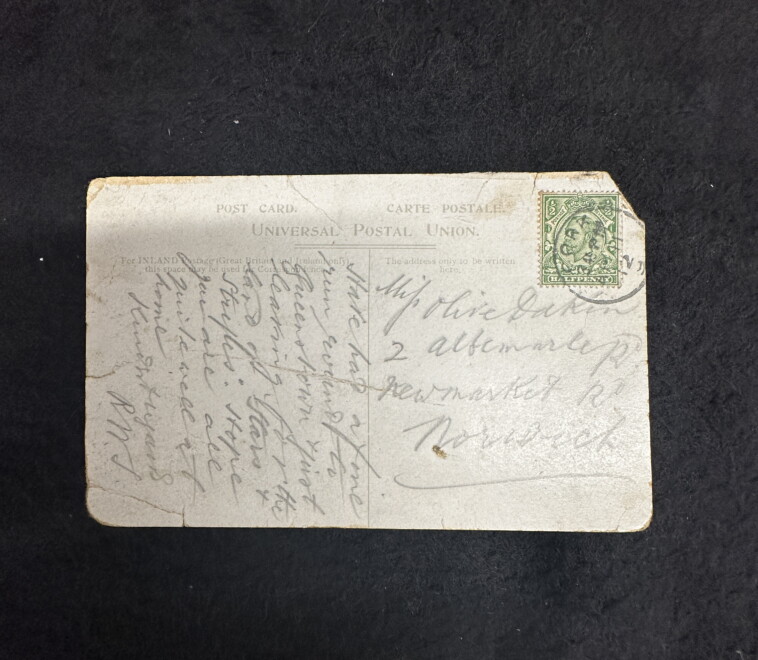 POST CARD.
CARTE POSTALE.
UNIVERSAL POSTAL UNION.
For INLAND Postage (Great Britain and Ireland only)
this space may be used for
The address only to be written
here.
HALFPENNY
Miss Olive Dakin
2 Albemarle
Newmarket Rd
Norwich
have had a fine
run round to
Queenstown & just
leaving for the
land of Stars &
Stripes. Hope
you are all
quite well at
home
Kindest regards